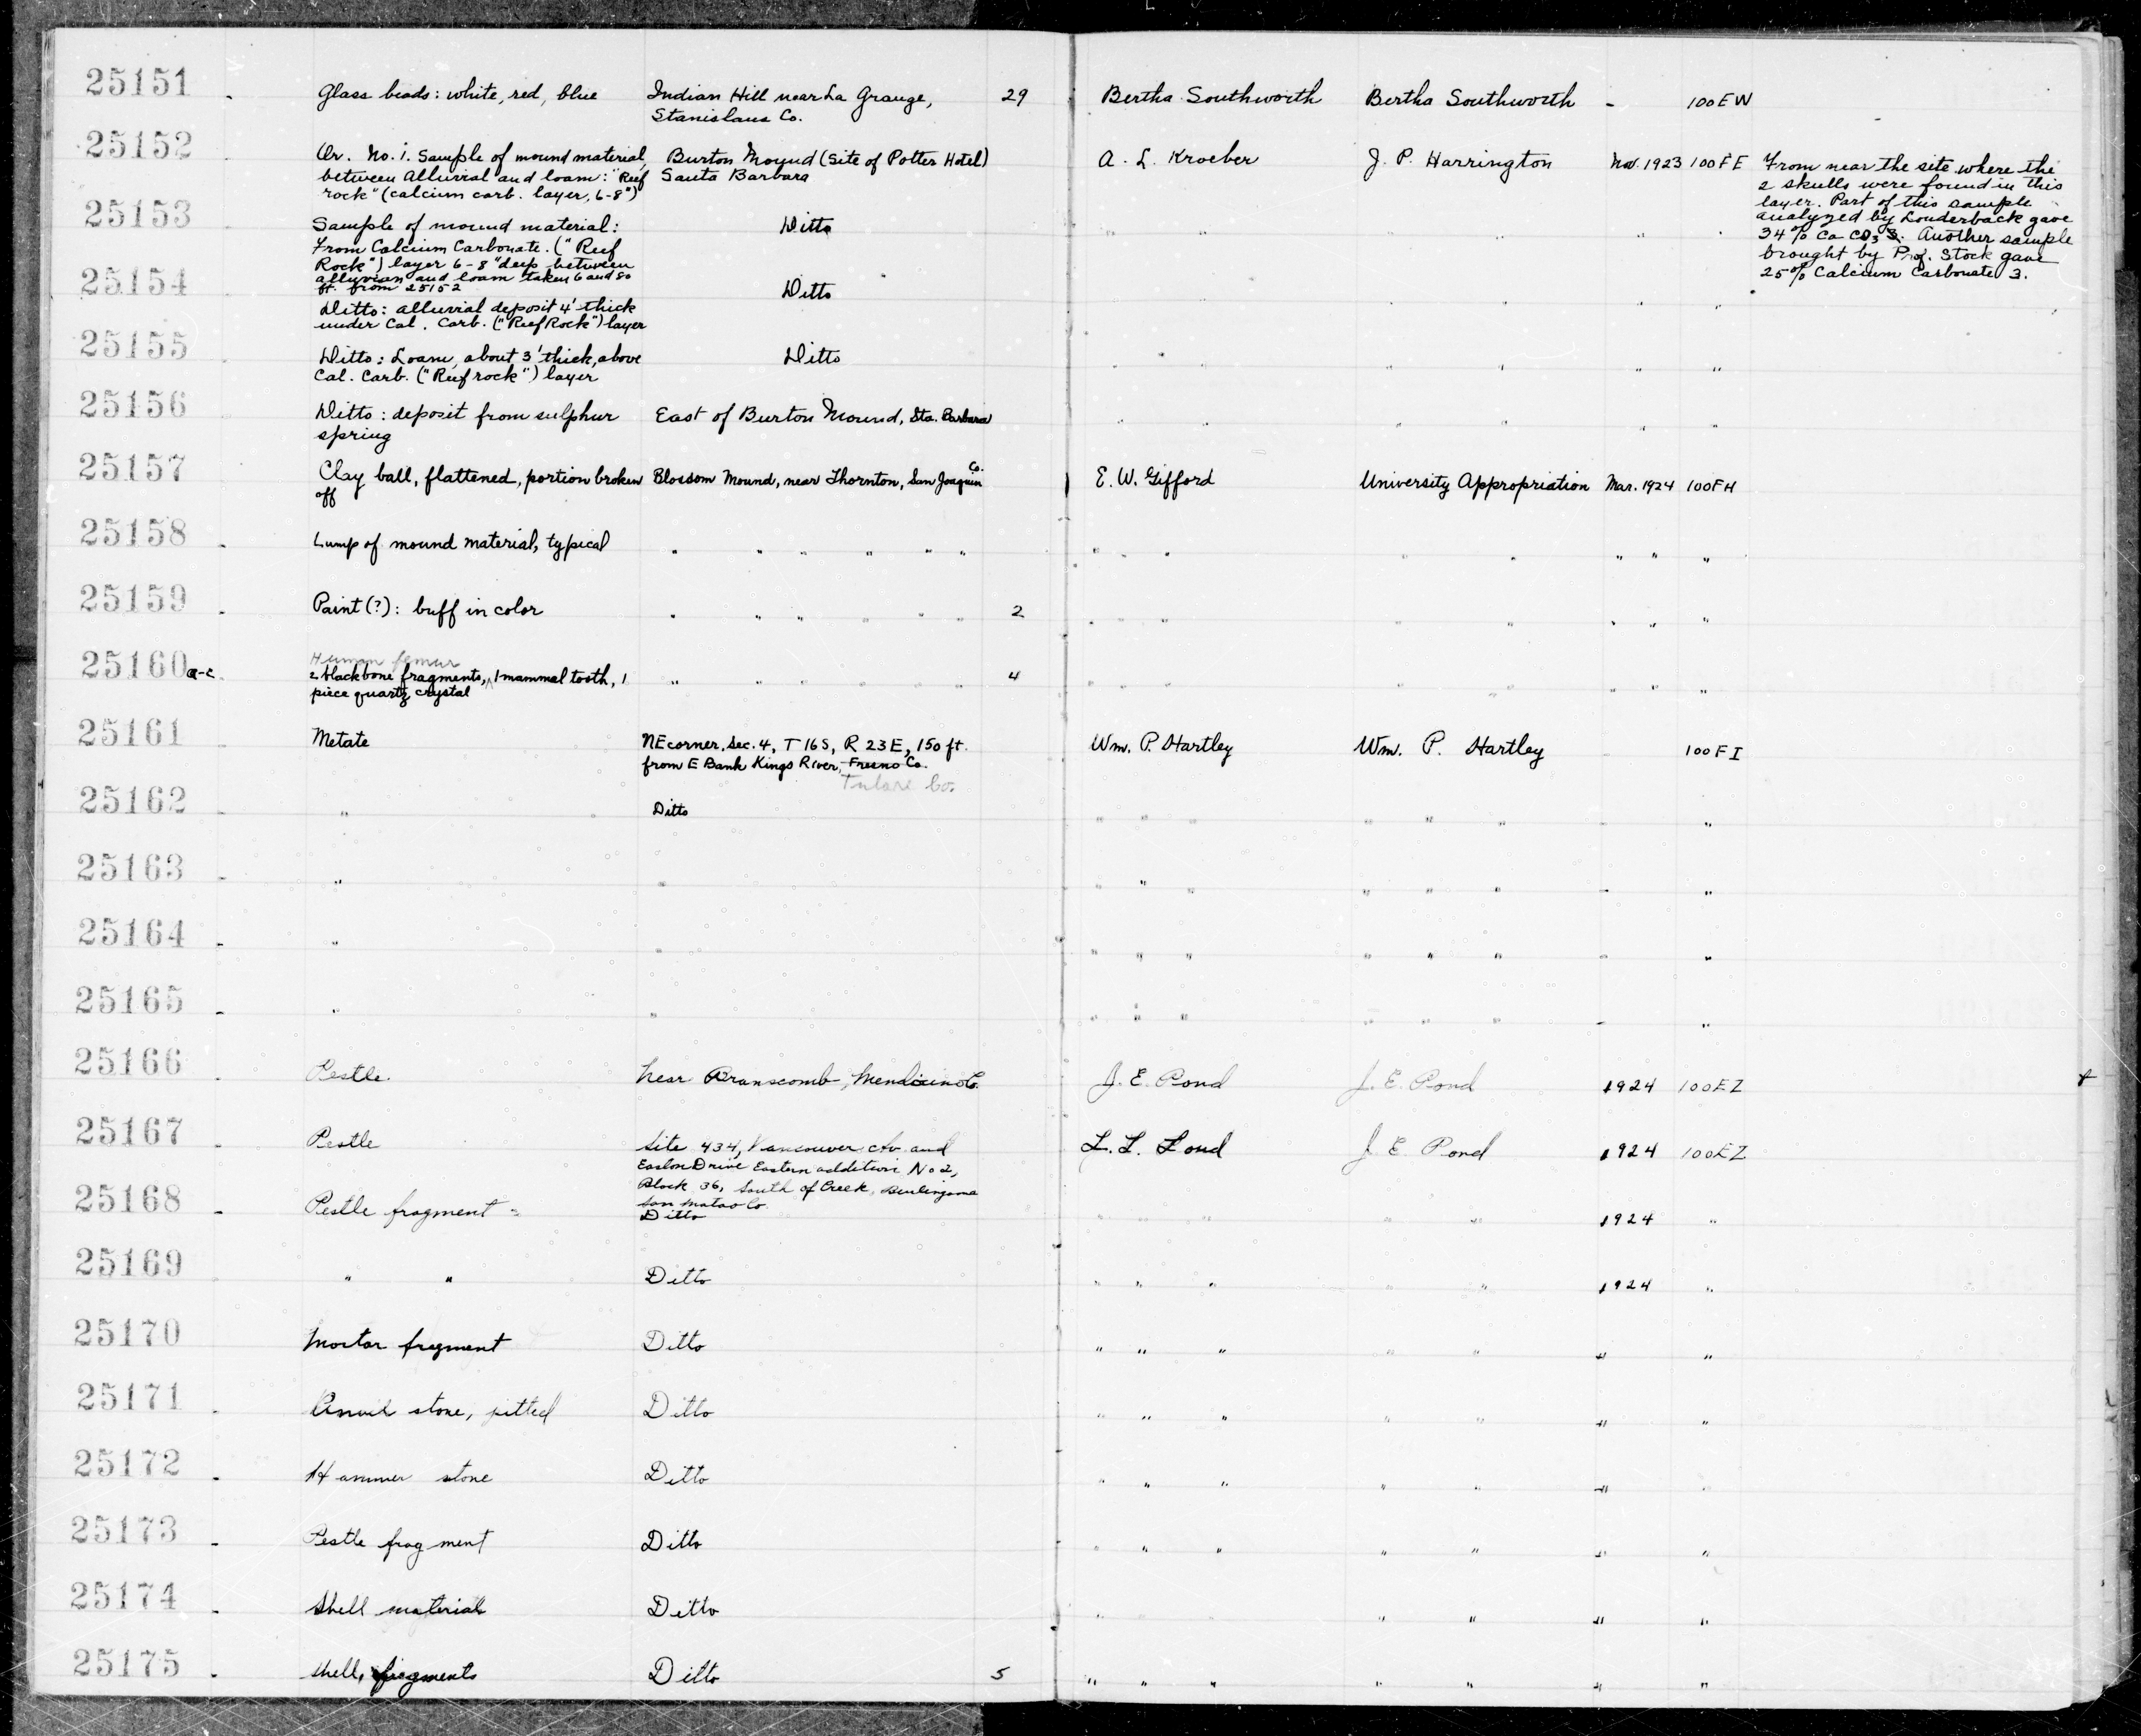 25151 - Glass beads: white, red, blue Indian Hill near La Grange, 29 Bertha Southworth Bertha Southworth - 100EW
Stanislaus Co.
25152 Or. No. 1. Sample of mound material, Burton Mound (Site of Potter Hotel) A. L. Kroeber J. P. Harrington Nov. 1923 100FE From near the site where the
between Alluvial and loam: "Reef Santa Barbara 2 skulls were found in this
rock" (calcium carb. layer, 6-8") layer. Part of this sample
25153 Sample of mound material: Ditto " " " " " " analyzed by Louderback gave
From Calcium Carbonate. ("Reef 34% Ca CO3 3. Another sample
Rock") layer 6-8" deep between brought by Prof. Stock gave
alluvian and loam taken 6 and 80 25% Calcium Carbonate 3.
ft. from 25152
25154 Ditto: alluvial deposit 4' thick Ditto " " " " " "
under Cal. Carb. ("Reef Rock") layer
25155 Ditto: Loam, about 3' thick, above Ditto " " " " " "
Cal. Carb. ("Reef rock") layer
25156 Ditto: deposit from sulphur East of Burton Mound, Sta. Barbara " " " " " "
spring
25157 Clay ball, flattened, portion broken Blossom Mound, near Thornton, San Joaquin Co. E. W. Gifford University Appropriation Mar. 1924 100FH
off
25158 - Lump of mound material, typical " " " " " " " " " " " " " "
25159 - Paint (?): buff in color " " " " " " 2 " " " " " " " "
Human femur
25160 a-c 2 black bone fragments, 1 mammal tooth, 1 " " " " " " 4 " " " " " " " "
piece quartz crystal
25161 - Metate NE corner, Sec. 4, T 16 S, R 23 E, 150 ft. Wm. P. Hartley Wm. P. Hartley - 100FI
from E Bank Kings River, Fresno Co.
Tulare Co.
25162 - " Ditto " " " " " " - "
25163 - " " " " " " " " - "
25164 - " " " " " " " " - "
25165 - " " " " " " " " - "
25166 - Pestle. Near Branscomb, Mendocino Co. J. E. Pond J. E. Pond 1924 100EZ
25167 - Pestle Site 434, Vancouver Av. and J. E. Pond 1924 100EZ
Easton Drive Eastern addition No 2,
Block 36, South of Creek, Burlingame
San Mateo Co
25168 - Pestle fragment - Ditto " " " " " 1924 "
25169 - " " Ditto " " " " " 1924 "
25170 - Mortar fragment Ditto " " " " " " "
25171 - Anvil stone, pitted Ditto " " " " " " "
25172 - Hammer stone Ditto " " " " " " "
25173 - Pestle fragment Ditto " " " " " " "
25174 - Shell material Ditto " " " " " "
25175 - Shell, fragments Ditto 5 " " " " " " "